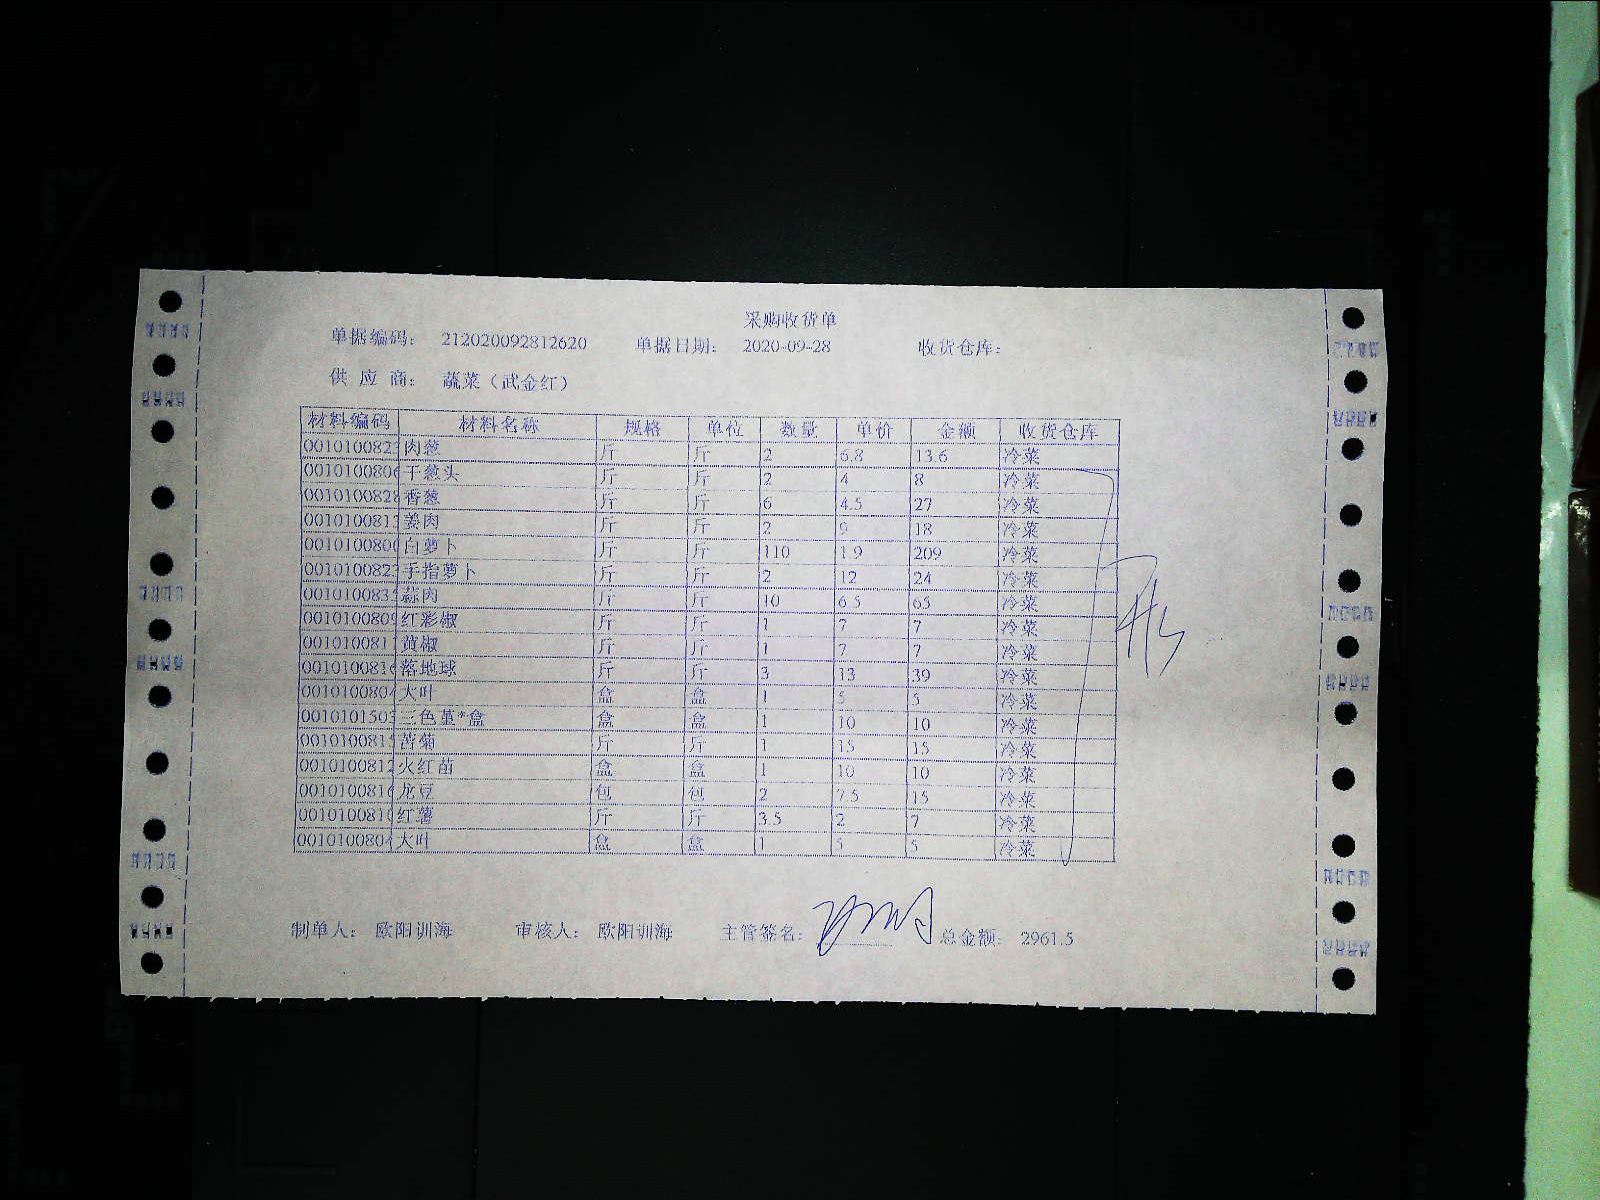 采购收货单
单据编码： 212020092812620 单据日期： 2020-09-28 收货仓库：
供 应 商： 蔬菜（武金红）
材料编码 材料名称 规格 单位 数量 单价 金额 收货仓库
001010082 肉葱 斤 斤 2 6.8 13.6 冷菜
001010080 干葱头 斤 斤 2 4 8 冷菜
001010082 香葱 斤 斤 6 4.5 27 冷菜
001010081 姜肉 斤 斤 2 9 18 冷菜
001010080 白萝卜 斤 斤 110 1.9 209 冷菜
001010082 手指萝卜 斤 斤 2 12 24 冷菜
001010083 蒜肉 斤 斤 10 6.5 65 冷菜
001010080 红彩椒 斤 斤 1 7 7 冷菜
001010081 黄椒 斤 斤 1 7 7 冷菜
001010081 落地球 斤 斤 3 13 39 冷菜
001010080 大叶 盒 盒 1 5 5 冷菜
001010150 三色堇*盒 盒 盒 1 10 10 冷菜
001010081 苦菊 斤 斤 1 15 15 冷菜
001010081 火红苗 盒 盒 1 10 10 冷菜
001010081 龙豆 包 包 2 7.5 15 冷菜
001010081 红薯 斤 斤 3.5 2 7 冷菜
001010080 大叶 盒 盒 1 5 5 冷菜
制单人： 欧阳训海 审核人： 欧阳训海 主管签名： 总金额： 2961.5